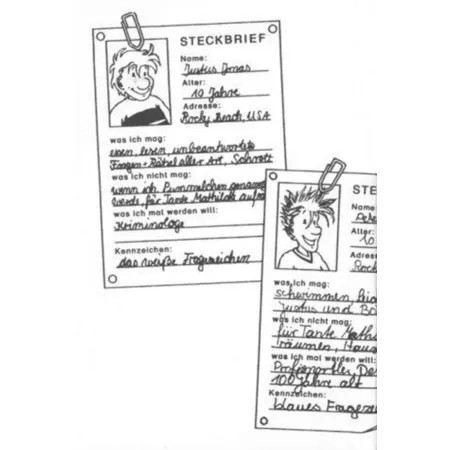 STECKBRIEF
Name:
Justus Jonas
Alter:
10 Jahre
Adresse:
Rocky Beach, USA
was ich mag:
essen, lesen, unbeantwortete
Fragen + Rätsel aller Art, Schrott
was ich nicht mag:
wenn ich Pummelchen genannt
werde, für Tante Mathilda aufrä
was ich mal werden will:
Kriminologe
Kennzeichen:
das weiße Fragezeichen
STE
Name
Pete
Alter:
10
Adres
Rock
was ich mag:
schwimmen,
Justus und Bo
was ich nicht mag:
für Tante Mathi
träumen, Haus
was ich mal werden will:
Profisportler, De
100 Jahre alt
Kennzeichen:
blaues Frageze